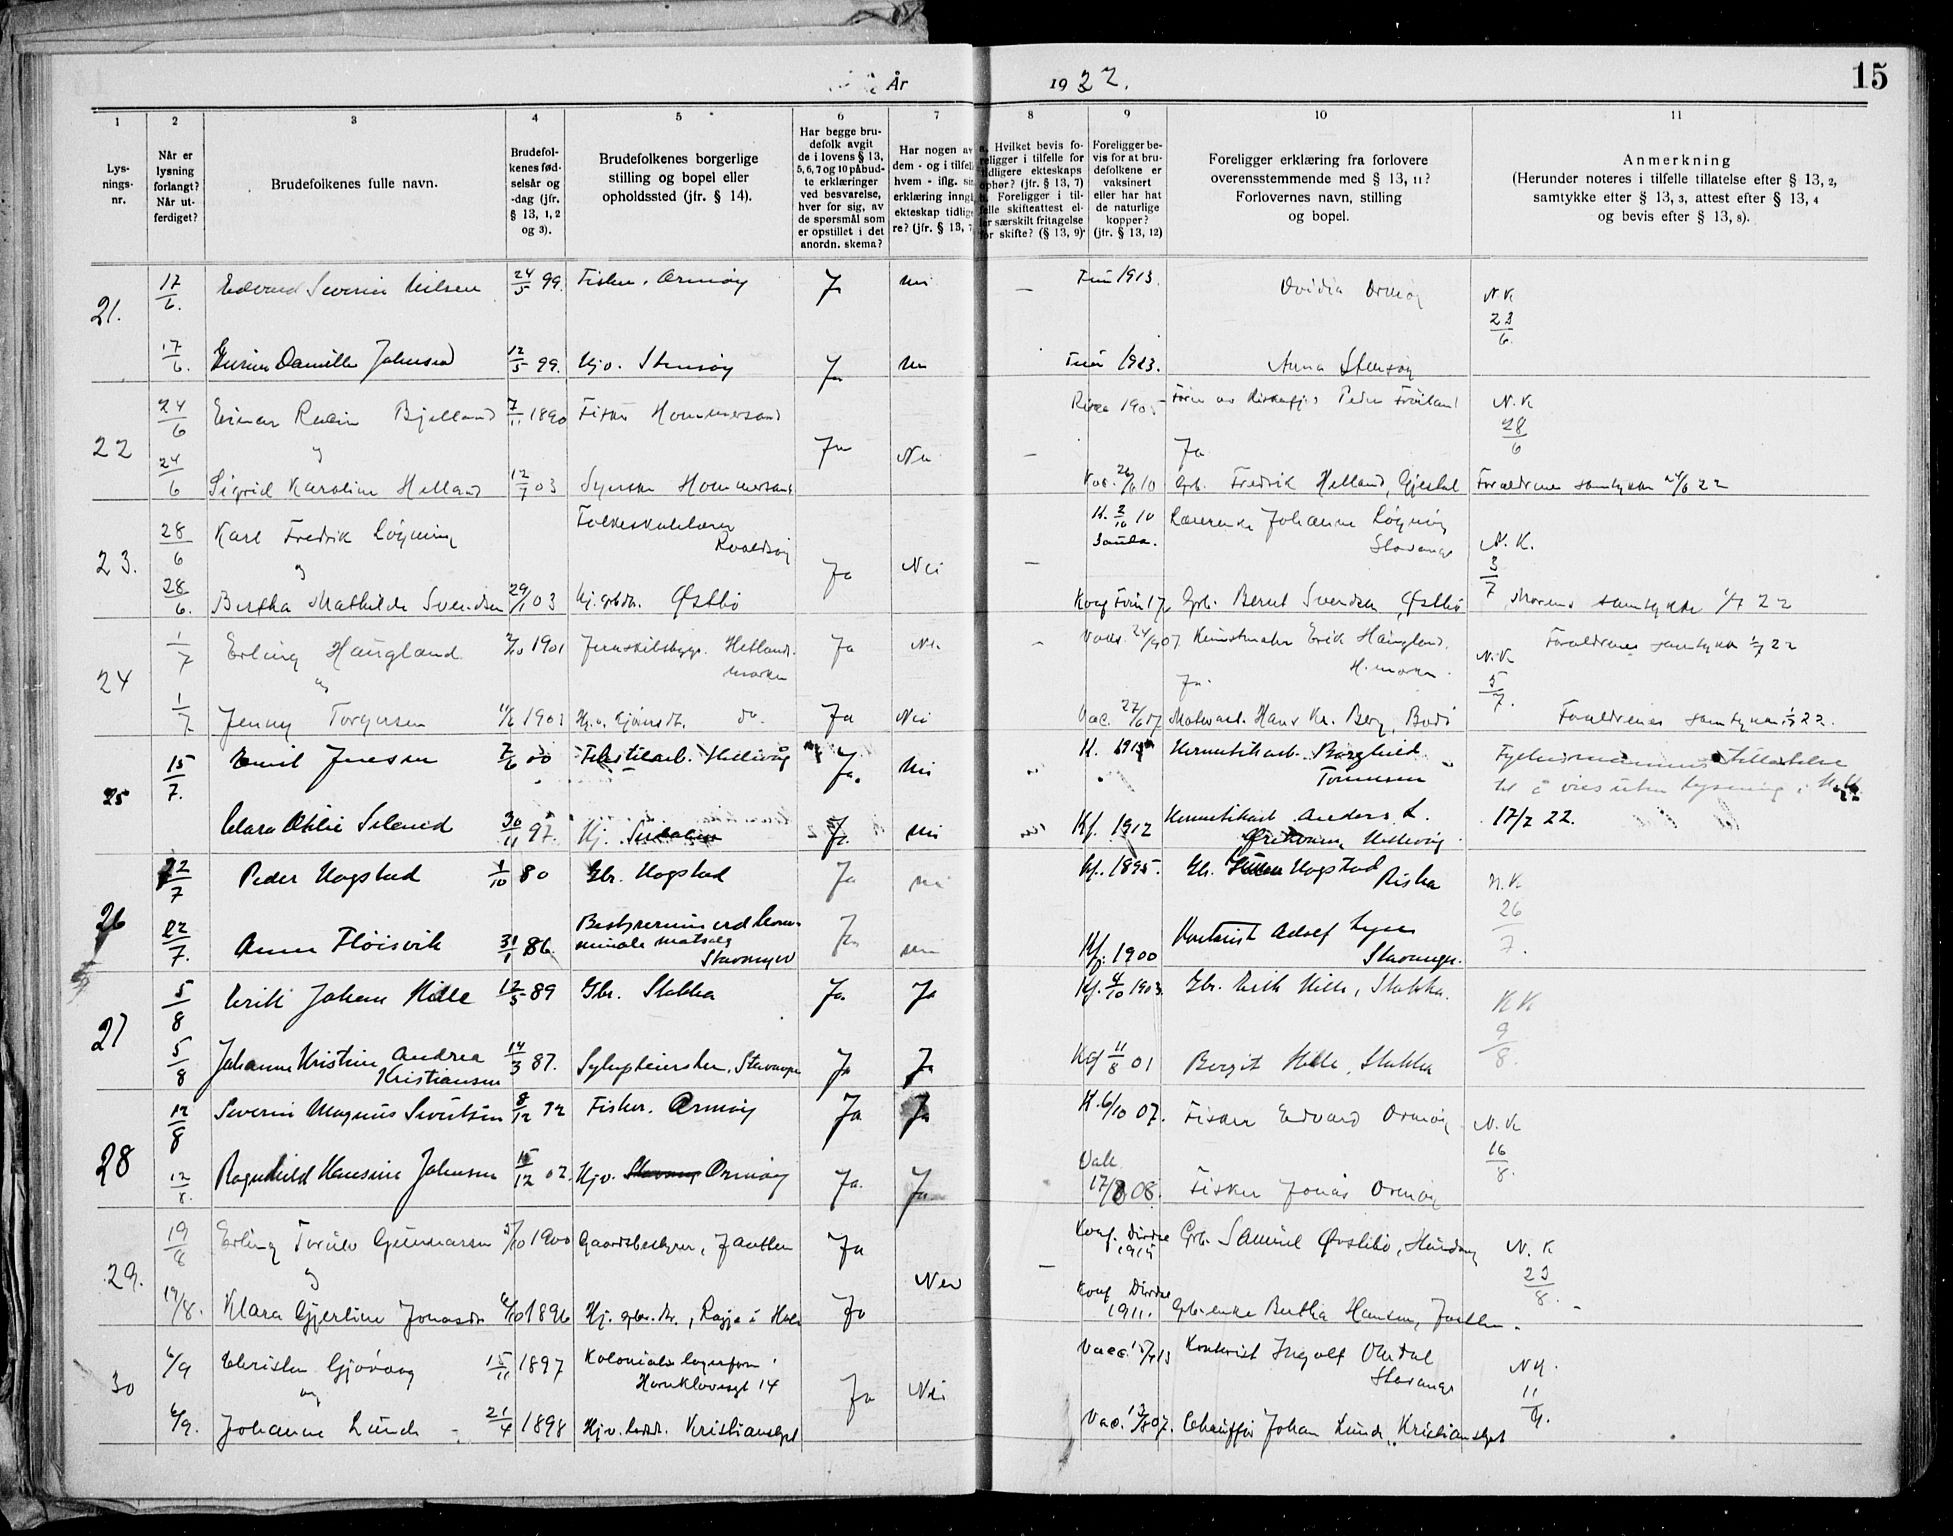 År 1922.
15
1
2
3
4
5
6
7
8
9
10
11
Lys-
nings-
nr.
Når er
lysning
forlangt?
Når ut-
ferdiget?
Brudefolkenes fulle navn.
Brudefol-
kenes fød-
selsår og
-dag (jfr.
§ 13, 1, 2
og 3).
Brudefolkenes borgerlige
stilling og bopel eller
opholdssted (jfr. § 14).
Har begge bru-
defolk avgit
de i lovens § 13,
5, 6, 7 og 10 påbud-
te erklæringer
ved besvarelse,
hver for sig, av
de spørsmål som
er opstillet i det
anordn. skema?
Har nogen av
dem - og i tilfelle
hvem - iflg. sin
erklæring inngå
ekteskap tidlige
re? (jfr. § 13, 7
a. Hvilket bevis fo-
religger i tilfelle for
tidligere ekteskaps
ophør? (jfr. § 13, 7)
b. Foreligger i til-
felle skifteattest el-
ler særskilt fritagelse
for skifte? (§ 13, 9)
Foreligger be-
vis for at bru-
defolkene er
vaksinert
eller har hat
de naturlige
kopper?
(jfr. § 13, 12)
Foreligger erklæring fra forlovere
overensstemmende med § 13, 11?
Forlovernes navn, stilling
og bopel.
Anmerkning
(Herunder noteres i tilfelle tillatelse efter § 13, 2,
samtykke efter § 13, 3, attest efter § 13, 4
og bevis efter § 13, 8).
21. 17/6. Edvard Severin Nilsen 24/5 99. Fisker. Ormøy Ja nei — 1913. Ovidia Ormøy N.K 23/6.
17/6. Danielle Johnsen 12/5 99. Hjv. Stensøy Ja nei 1913. Anna Stensøy
22 24/6 Einar Bjelland 7/11 1890 Fisker Hommersand Risa 1905 Peder Frøiland N.K 28/6
og Ja Nei — Ja
24/6 Sigrid Karoline Helland 12/7 03 Syerske Hommersand Vac. 26/6 10 Grb. Fredrik Helland, Gjestal Forældrenes samtykke 24/6 22
23. 28/6 Karl Fredrik Løyning Folkeskolelærer K. 2/10 10 Lærerinde Johanne Løyning N.K. 3/7
Roaldsøy Sauda. Stavanger
og Ja Nei —
28/6. Bertha Mathilde Svendsen 29/1 03 Hj. grbdtr. Østbø 17 Grb. Bernt Svendsen, Østbø Morens samtykke 1/7 22
24 1/7 Erling Haugland 2/10 1901 Hetlands- Ja Nei — Vacc. 24/9 07. Kunstmaler Erik Haugland, N.K 5/7. Forældrenes samtykke 1/7 22
marken H. marken.
og Ja.
1/7 Jenny Torgersen 11/6 1901 do. Ja Nei Vac. 27/6 07 Hans Kr. Berg, Bodø Forældrenes samtykke 1/7 22.
25 15/7. Emil Jensen 7/6 00 Hillevåg Ja. Nei K. 1915 Hermetikarb. Borghild Fylkesmannens tillatelse
Tønnesen til å vies uten lysning
Clara Otilie 30/11 97. Hj. Ja. nei Kf. 1912 Hermetikarb. Anders L. 17/7 22.
Hillevåg
26 22/7 Peder Hogstad 1/10 80 Gbr. Hogstad Ja nei Kf. 1895. Gb. Hogstad N.K 26/7.
Riska
22/7. Anna Fløisvik 31/1 86. Bestyrerinne ved kom- Ja nei Kf. 1900 Kontorist Adolf
munale matsalg Stavanger.
Stavanger
27 5/8 Erik Johan Hille 12/5 89 Gbr. Stokka Ja Ja Kf. 4/10 1903. Gbr. Erik Hille, Stokka. K K 9/8.
5/8 Johanne Kristine Andrea 14/3 87. Sykepleierske, Stavanger Ja Ja Kof 11/8 01 Bergit Hille, Stokka
Kristiansen
28 12/8 Severin Magnus Sivertsen 8/12 92 Fisker. Ormøy Ja Ja K. 6/10 07. Fisker Edvard Ormøy N.K 16/8.
12/8. Ragnhild Hansine Johnsen 15/12 02. Hjv. Stavang Ormøy Ja. Ja Vak 17/8 08. Fisker Jonas Ormøy
29. 19/8 Erling Torulv Gunnarsen 5/10 1900 Gaardsbestyrer, Jaatten Ja Konf. Dirdal Grb. Samuel Øvstebø, N. K 23/8.
1915
og Nei —
19/8. Klara Gjertine Jonasdr 6/10 1896 Hj. gbr. dtr., Ragja i Hole Ja Konf Dirdal Grb. enke Bertha Hansen, Jaatten.
1911.
30 6/9 Christen Gjøvaag 15/11 1897 Kolonial Vacc. 13 Kontorist Ingolf Omdal N.K. 11/9.
Haraklovesgt 14 Stavanger
og Ja Nei
6/9. Johanne Lunde 21/4 1898 Hjv. Kristiansgt Vac. 13/8 07. Chauffør Johan Lunde, Kristiansgt